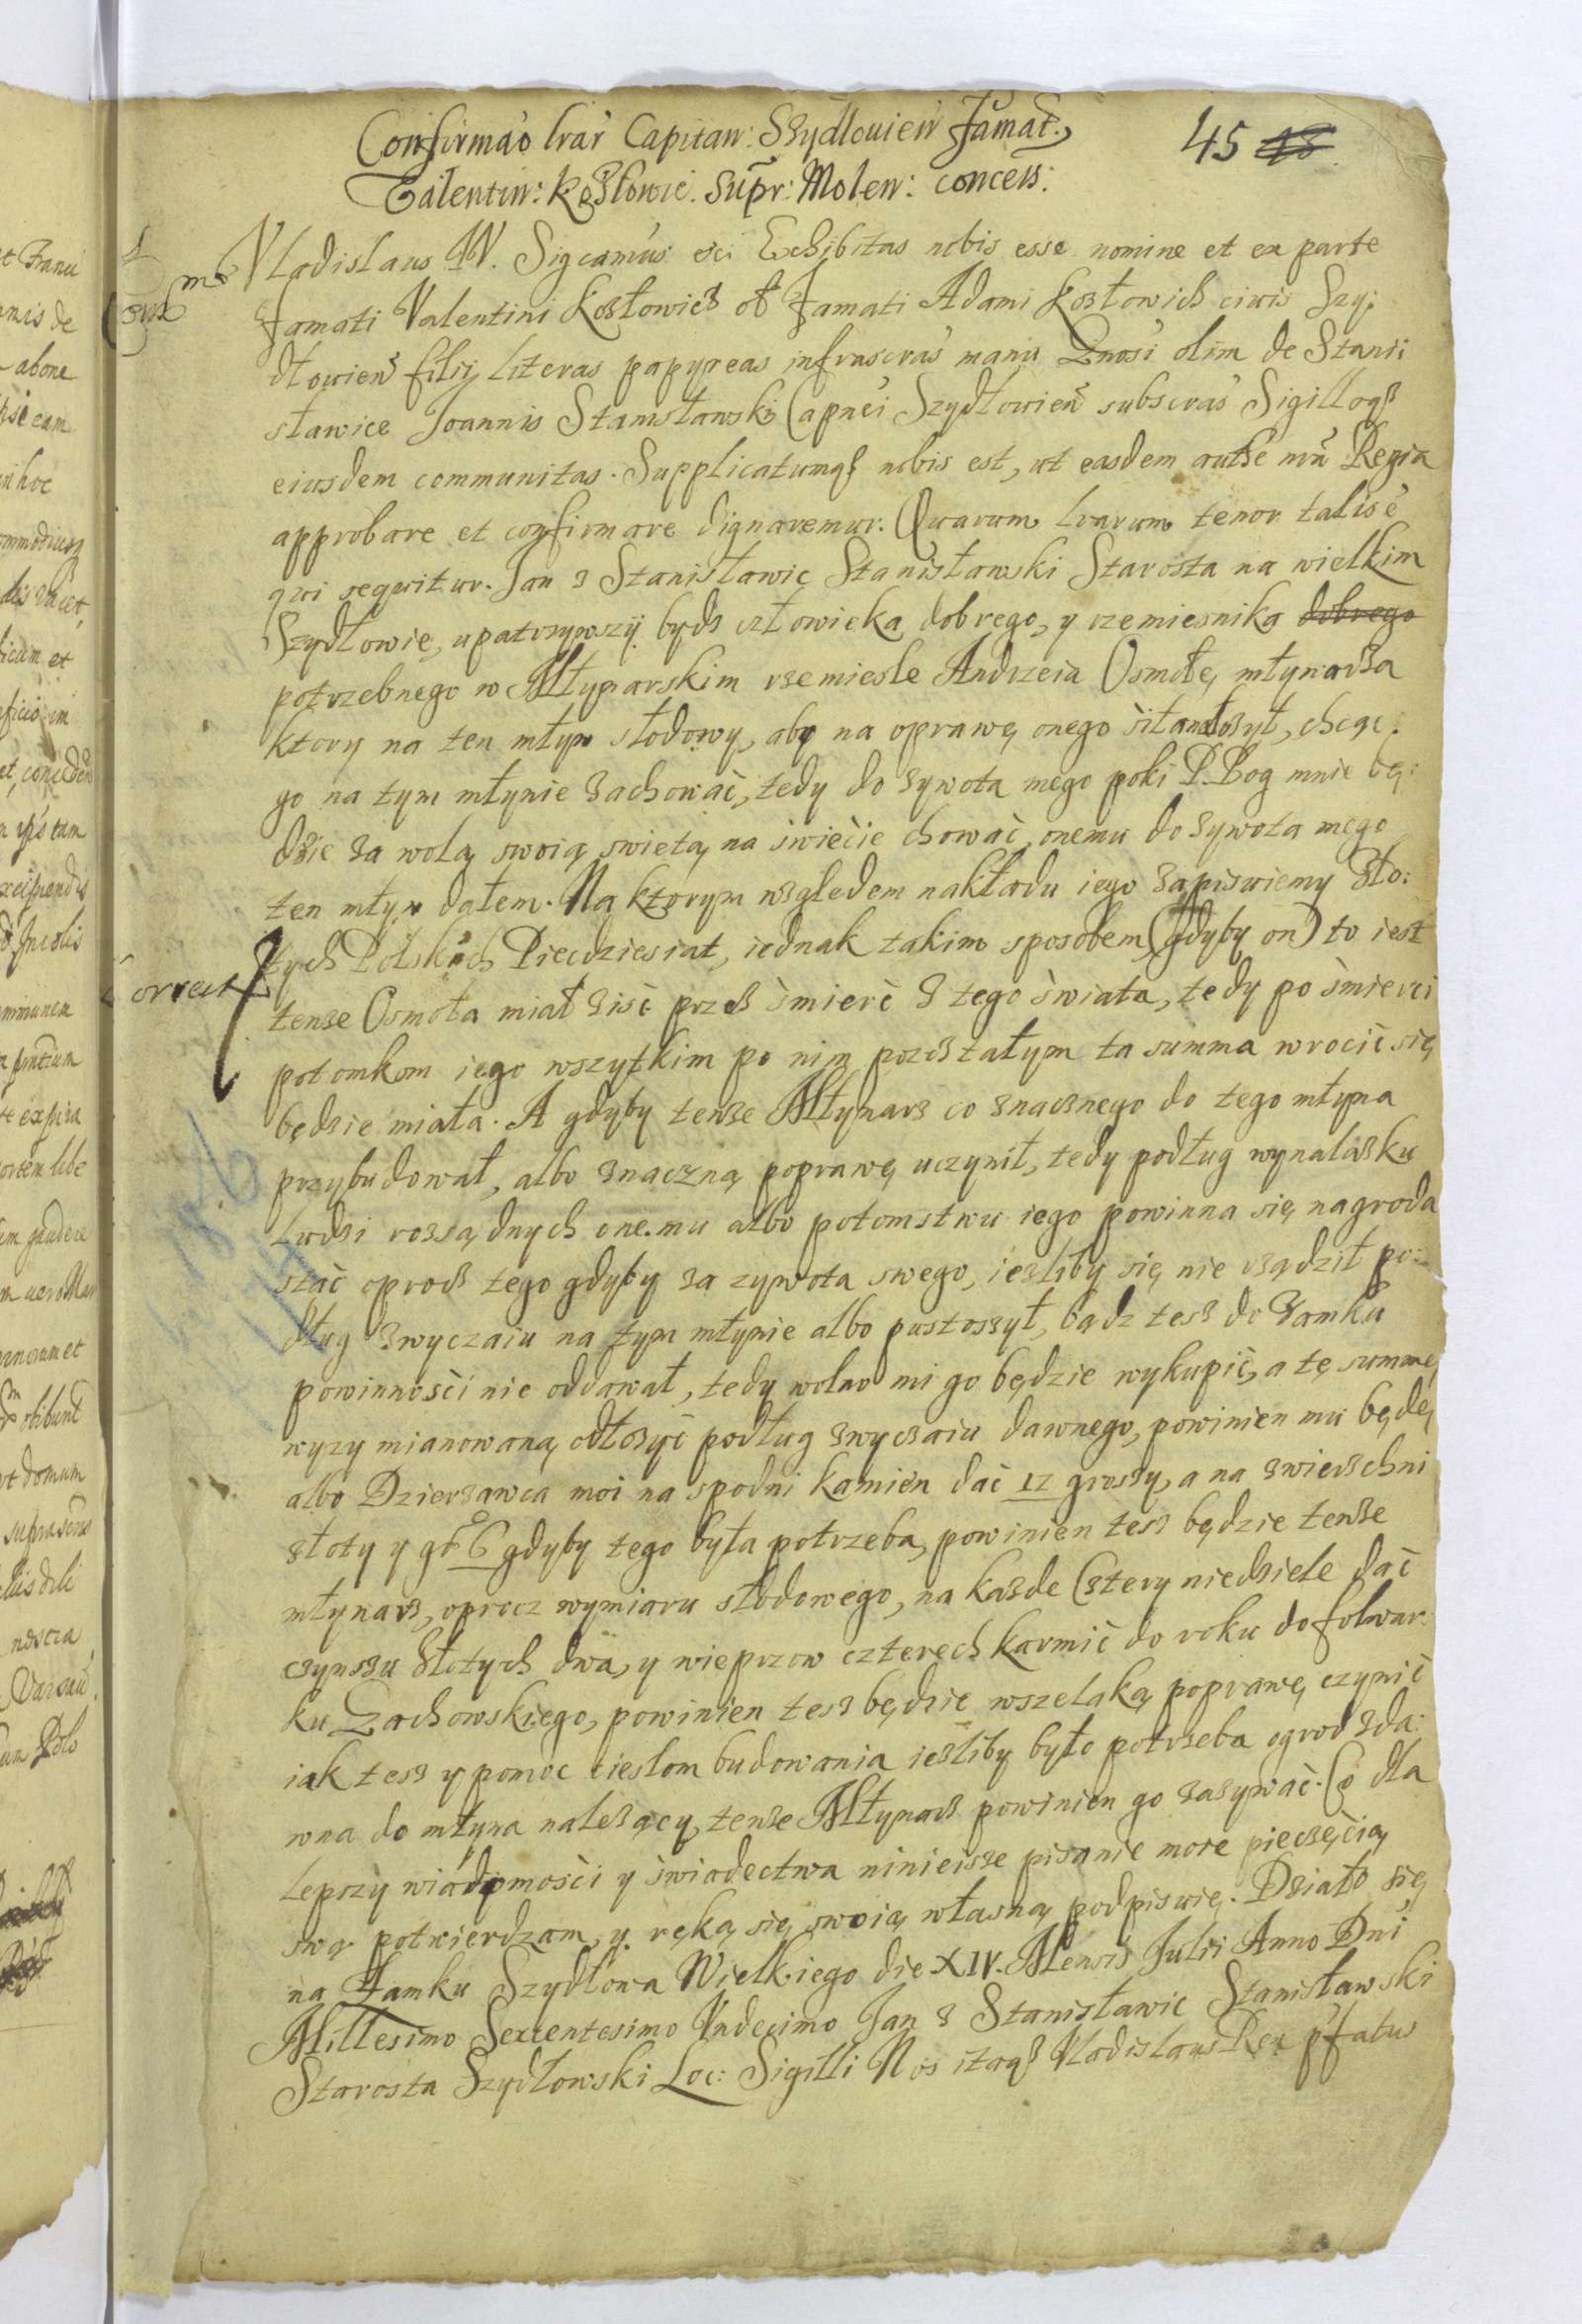 Confirmao lrar Capitan: Szydlouien Famat.
Valentin: Kozłowic. supr: Molen: concess:
45 48
Vladislaus IV. Sigcamus &ci Exhibitas nobis esse nomine et ex parte
Famati Valentini Kozłowicz ob Famati Adami Kozłowich civis Szy:
dłowien filij literas papyreas infrascras manu Gnosi olim de Stani:
sławice Joannis Stanisławski Capnei Szydłowien subscras Sigilloq3
eiusdem communitas. Supplicatumq3 nobis est, ut easdem authe nra Regia
approbare et confirmare dignaremur. Quarum lrarum tenor talis e
qui sequitur. Jan z Stanisławic Stanisławski Starosta na wielkim
Szydłowie, upatrzywszy bydz człowieka dobrego, y rzemiesnika dobrego
potrzebnego w Młynarskim rzemiesle Andrzeia Osmołę, młynarza
ktory na ten młyn słodowy, aby na oprawę onego siła nałozył, chcąc
go na tym młynie zachować, tedy do zywota mego poki P. Bog mnie bę:
dzie za wolą swoią swietą na swiecie chować, onemu do zywota mego
ten młyn dałem. Na ktorym względem nakładu iego zapisuiemy zło:
tych Polskich Piecdziesiat, iednak takim sposobem (gdyby on) to iest
correct
tenze Osmoła miał ziść przez smierć z tego swiata, tedy po smierci
potomkom iego wszytkim po nim pozostałym ta summa wrocić się
będzie miała. A gdyby tenze Młynarz co znacznego do tego młyna
przybudował, albo znaczną poprawę uczynił, tedy podług wynalasku
Ludzi rozsądnych onemu albo potomstwu iego powinna się nagroda
stać oprocz tego gdyby za zywota swego, iezliby się nie rządził po:
dług zwyczaiu na tym młynie albo pustoszył, bądz tesz do Zamku
powinności nie oddawał, tedy wolno mi go będzie wykupić, a tę summę
wyzy mianowaną odłozyć podług zwyczaiu dawnego, powinien mu będę
albo Dzierzawca moi na spodni kamien dać 12 groszy, a na zwierzchni
złoty y gr 6 gdyby tego była potrzeba, powinien tesz będzie tenze
młynarz, oprocz wymiaru słodowego, na kazde Cztery niedziele dać
czynszu złotych dwa, y wieprzow czterech karmić do roku do folwar:
ku Zachowskiego, powinien tesz będzie wszelaką poprawę czynić
iak tesz y pomoc cieslom budowania iezliby było potrzeba ogrod zda:
wna do młyna nalezący, tenze Młynarz powinien go zazywać. Co dla
lepszy wiadomości y swiadectwa ninieisze pisanie moie pieczęcią
swą potwierdzam, y ręką się swoią własną podpisuię. Działo się
na Zamku Szydłowa Wielkiego die XIV. Mensis Julii Anno Dni
Millesimo Sexcentesimo Undecimo Jan z Stanisławic Stanisławski
Starosta Szydłowski Loc: Sigilli Nos itaq3 Vladislaus Rex pfatus